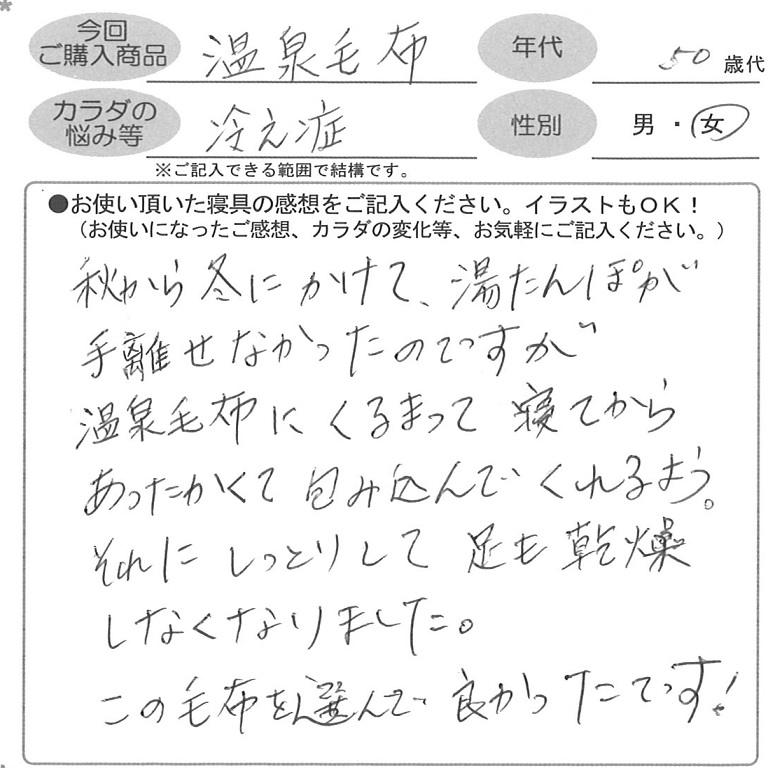 今回
ご購入商品 温泉毛布 年代 50 歳代
カラダの
悩み等 冷え症 性別 男・女
※ご記入できる範囲で結構です。
●お使い頂いた寝具の感想をご記入ください。イラストもOK！
（お使いになったご感想、カラダの変化等、お気軽にご記入ください。）
秋から冬にかけて、湯たんぽが
手離せなかったのですが
温泉毛布にくるまって寝てから
あったかくて包み込んでくれるよう。
それにしっとりして足も乾燥
しなくなりました。
この毛布を選んで良かったです!